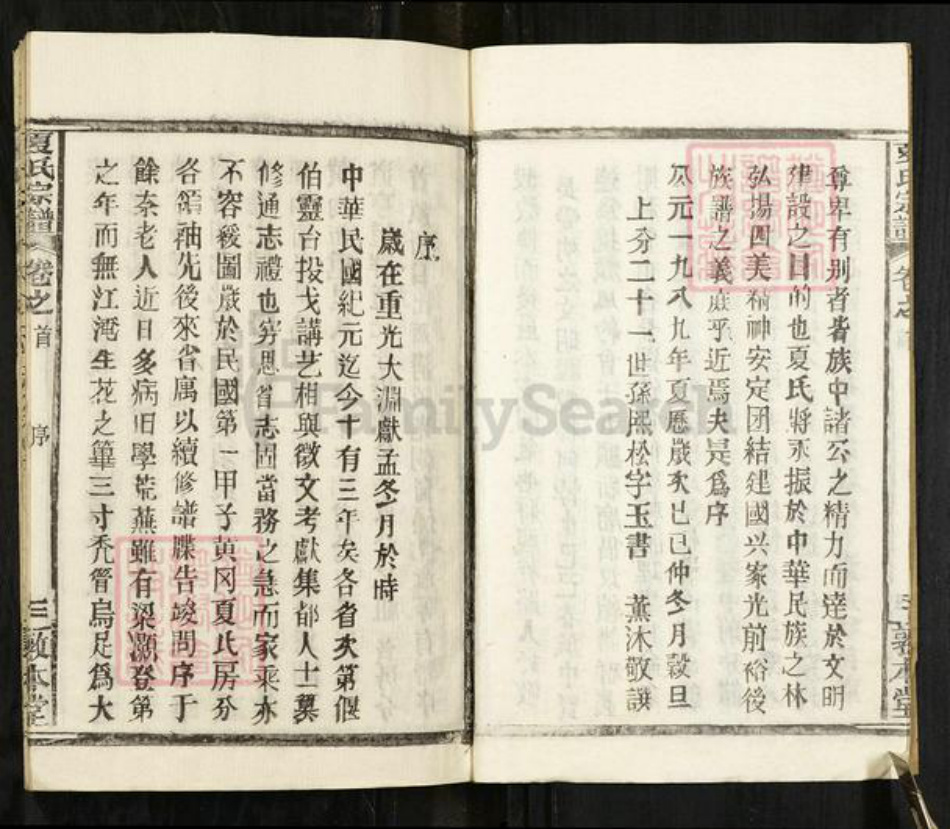 尊卑有别者耆族中諸公之精力而達於文明
建設之目的也夏氏將永振於中華民族之林
弘揚四美精神安定团結建國兴家光前裕後
族譜之義庶乎近焉夫是爲序
公元一九八九年夏曆歲次己巳仲冬月穀旦
上分二十一世孫熙松字玉書 薰沐敬譔
序
歲在重光大淵獻孟冬月於時
中華民國紀元迄今十有三年矣各省次第偃
伯靈台投戈講艺相與徵文考獻集都人士纂
修通志禮也穷思省志固當務之急而家乘亦
不容緩圖歲於民國第一甲子黄冈夏氏房分
各領袖先後來省寓以續修譜牒告竣問序于
餘柰老人近日多病旧學荒蕪雖有梁灝登第
之年而無江淹生花之筆三寸禿管烏足爲大
夏氏宗譜 卷之首 序 三 敦本堂
FamilySearch